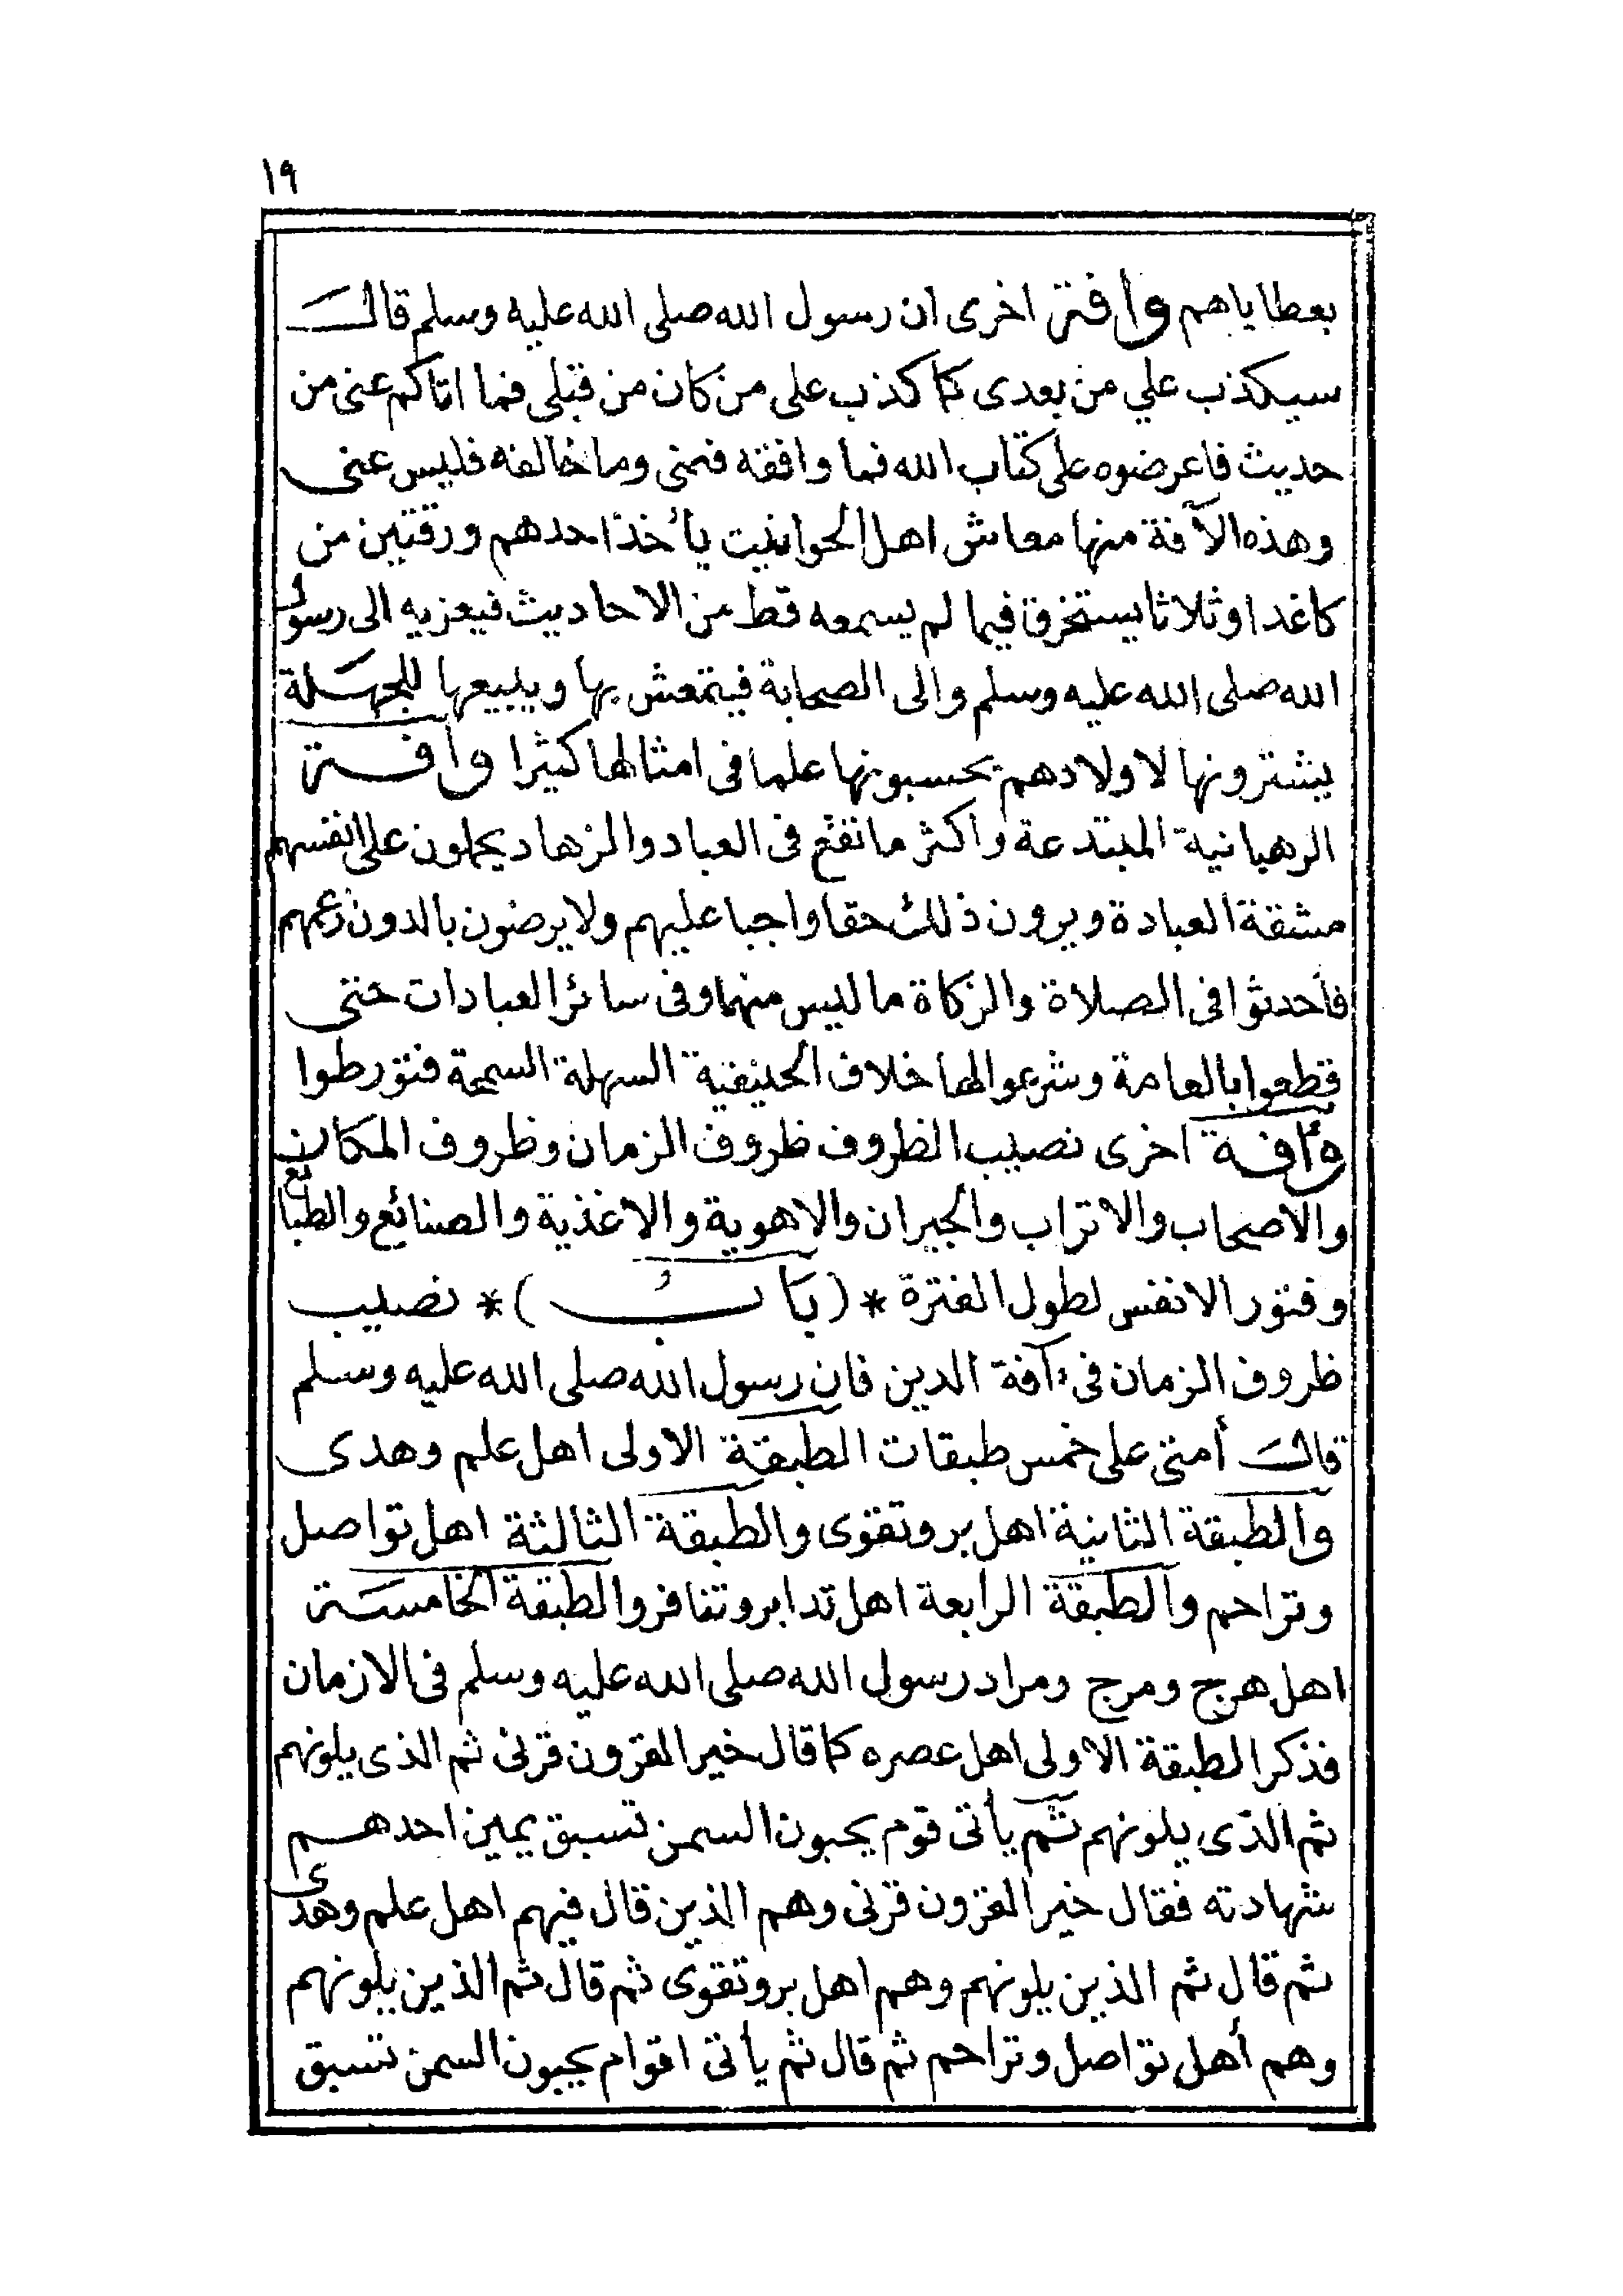 ١٩
بعطاياهم وافة اخرى ان رسول الله صلى الله عليه وسلم قال
سيكذب علي من بعدى كما كذب على من كان من قبلى فما اتاكم عنى من
حديث فاعرضوه على كتاب الله فما وافقه فمنى وما خالفه فليس عنى
وهذه الآفة منها معاش اهل الحوانيت يأخذ احدهم ورقتين من
كاغد او ثلاثا يستخرق فيما لم يسمعه قط من الاحاديث فيعزيه الى رسول
الله صلى الله عليه وسلم والى الصحابة فيتمعش بها ويبيعها للجهلة
يشترونها لاولادهم يحسبونها علما فى امثالها كثيرا وافة
الرهبانية المبتدعة واكثر ما تقع فى العباد والزهاد يحملون على انفسهم
مشقة العبادة ويرون ذلك حقا واجبا عليهم ولا يرضون بالدون زعمهم
فأحدثوا فى الصلاة والزكاة ما ليس منهما وفى سائر العبادات حتى
قطعوا بالعامة وشرعوا لها خلاف الحنيفية السهلة السمحة فتورطوا
وأفة اخرى نصيب الظروف ظروف الزمان وظروف المكان
والاصحاب والاتراب والجيران والاهوية والاغذية والصنائع والطبائع
وفتور الانفس لطول الفترة *( بَابُ )* نصيب
ظروف الزمان فى آفة الدين فان رسول الله صلى الله عليه وسلم
قال أمتى على خمس طبقات الطبقة الاولى اهل علم وهدى
والطبقة الثانية اهل بر وتقوى والطبقة الثالثة اهل تواصل
وتراحم والطبقة الرابعة اهل تدابر وتنافر والطبقة الخامسة
اهل هرج ومرج ومراد رسول الله صلى الله عليه وسلم فى الازمان
فذكر الطبقة الاولى اهل عصره كما قال خير القرون قرنى ثم الذى يلونهم
ثم الذى يلونهم ثم يأتى قوم يحبون السمن تسبق يمين احدهم
شهادته فقال خير القرون قرنى وهم الذين قال فيهم اهل علم وهدى
ثم قال ثم الذين يلونهم وهم اهل بر وتقوى ثم قال ثم الذين يلونهم
وهم أهل تواصل وتراحم ثم قال ثم يأتى اقوام يحبون السمن تسبق